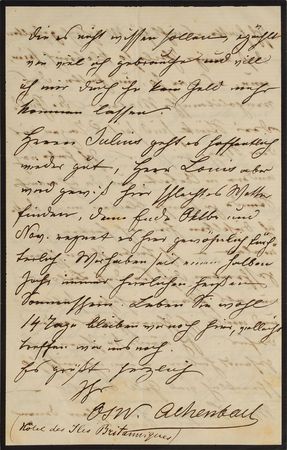 die es nicht wissen sollen, erzählt
wie viel ich gebrauche und will
ich nur durch ihn kein Geld mehr
kommen lassen.
Herrn Julius geht es hoffentlich
wieder gut, Herr Louis aber
wird gewiß hier schlechtes Wetter
finden, denn Ende Octb. und
Nov. regnet es hier gewöhnlich fürch-
terlich. Wir haben seit einem halben
Jahr immer herrlichen heißen
Sonnenschein. Leben Sie wohl
14 Tage bleiben wir noch hier, vielleicht
treffen wir uns noch.
Es grüßt herzlich
Ihr
Osw. Achenbach
(Hôtel des Iles Britanniques)